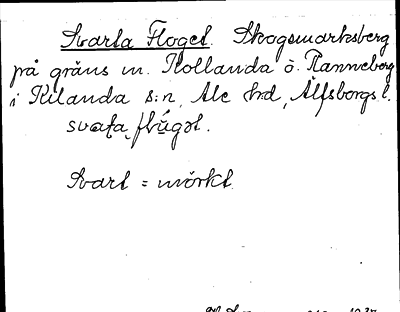 Svarta Flogel. Skogsmarksberg
på gräns m. Hollanda ö. Ranneberg
i Kilanda s:n, Ale h:d, Älfsborgs l.
svaʈa, flɯ́gəl.
Svart = mörkt.